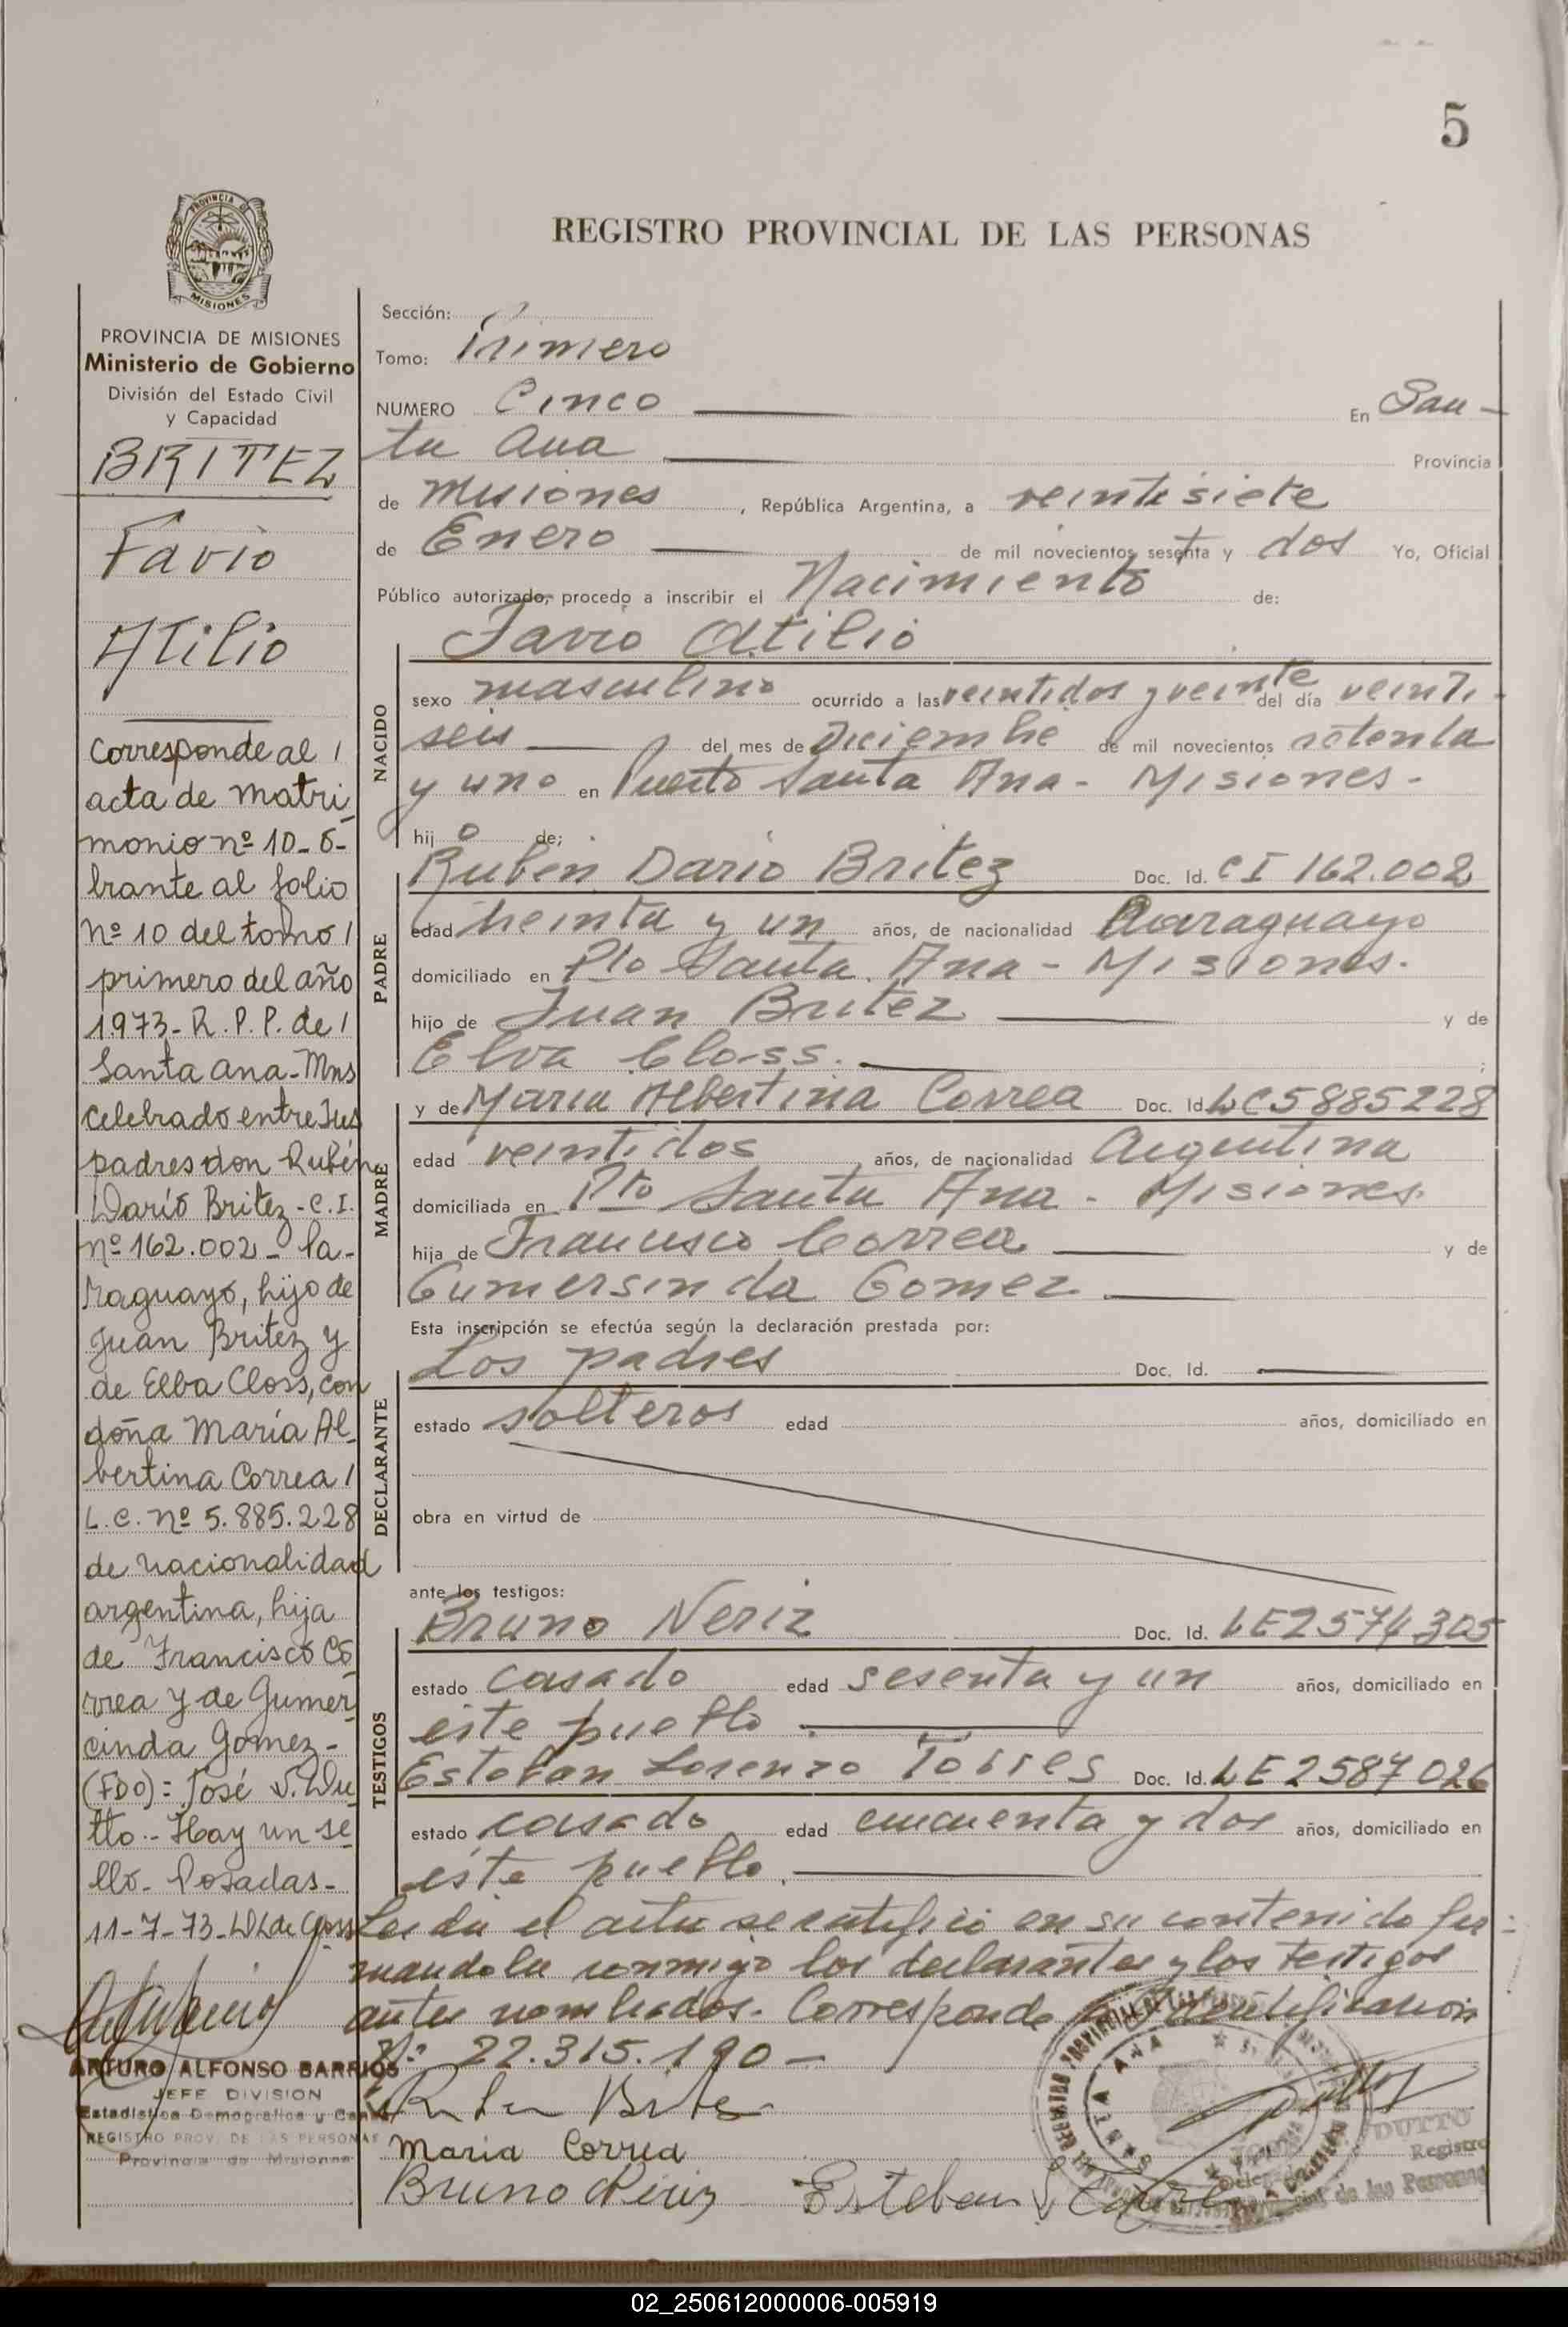 5
PROVINCIA DE MISIONES
MISIONES
PROVINCIA DE MISIONES
Ministerio de Gobierno
División del Estado Civil
y Capacidad
BRITEZ
Favio
Atilio
Corresponde al /
acta de matri
monio nº 10-o-
brante al folio
nº 10 del tomo /
primero del año
1973- R. P. P. de /
Santa Ana- Mns
celebrado entre sus
padres don Rubén
Darío Britez - C.I.
nº 162.002- Pa-
raguayo, hijo de
Juan Britez y
de Elba Closs, con
doña María Al-
bertina Correa /
L. C. nº 5.885.228
de nacionalidad
argentina, hija
de Francisco Co
rrea y de Gumer
cinda Gomez-
(FDO): José V. Du
tto.- Hay un se
llo- Posadas-
11-7-73-
ARTURO ALFONSO BARRIOS
JEFE DIVISION
Estadistica Demografica y
REGISTRO PROV. DE LAS PERSONAS
Provincia de Misiones
REGISTRO PROVINCIAL DE LAS PERSONAS
Sección:
Tomo: Primero
NUMERO Cinco En San-
ta Ana Provincia
de Misiones, República Argentina, a veintisiete
de Enero de mil novecientos sesenta y dos Yo, Oficial
Público autorizado, procedo a inscribir el Nacimiento de:
NACIDO
Favio Atilio
sexo masculino ocurrido a las veintidos y veinte del día veinti-
seis del mes de Diciembre de mil novecientos setenta
y uno en Puerto Santa Ana - Misiones-
hijo de:
PADRE
Ruben Dario Britez Doc. Id. CI 162.002
edad treinta y un años, de nacionalidad Paraguayo
domiciliado en Pto Santa Ana - Misiones.
hijo de Juan Britez y de
Elva Closs.
MADRE
y de Maria Albertina Correa Doc. Id. LC5885228
edad veintidos años, de nacionalidad Argentina
domiciliada en Pto Santa Ana - Misiones.
hija de Francisco Correa y de
Gumersinda Gomez
Esta inscripción se efectúa según la declaración prestada por:
DECLARANTE
Los padres Doc. Id.
estado solteros edad años, domiciliado en
obra en virtud de
ante los testigos:
TESTIGOS
Bruno Neriz Doc. Id. LE2574305
estado casado edad sesenta y un años, domiciliado en
este pueblo
Esteban Lorenzo Torres Doc. Id. LE2587026
estado casado edad cincuenta y dos años, domiciliado en
éste pueblo.
Leida el acta se ratifico en su contenido fir-
mandola conmigo los declarantes y los testigos
antes nombrados. Corresponde identificacion
Nº: 22.315.190-
Maria Correa
Bruno Neriz Esteban L
SANTA ANA
DUTTO
Registro
de las Personas
02_250612000006-005919